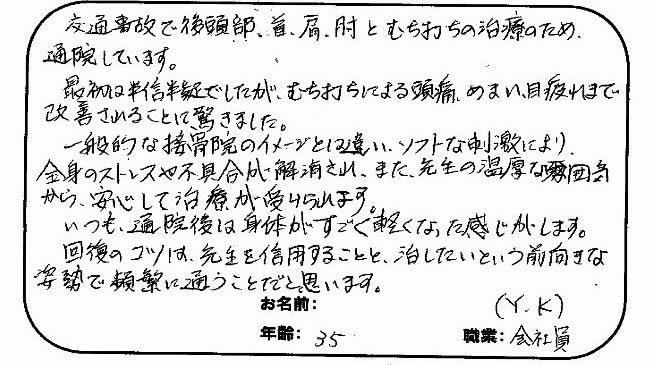 交通事故で後頭部、首、肩、肘とむち打ちの治療のため、
通院しています。
最初は半信半疑でしたが、むち打ちによる頭痛、めまい、目疲れまで
改善されることに驚きました。
一般的な接骨院のイメージとは違い、ソフトな刺激により、
全身のストレスや不具合が解消され、また、先生の温厚な雰囲気
から、安心して治療が受けられます。
いつも、通院後は身体がすごく軽くなった感じがします。
回復のコツは、先生を信用することと、治したいという前向きな
姿勢で頻繁に通うことだと思います。
お名前: (Y.K)
年齢: 35 職業: 会社員